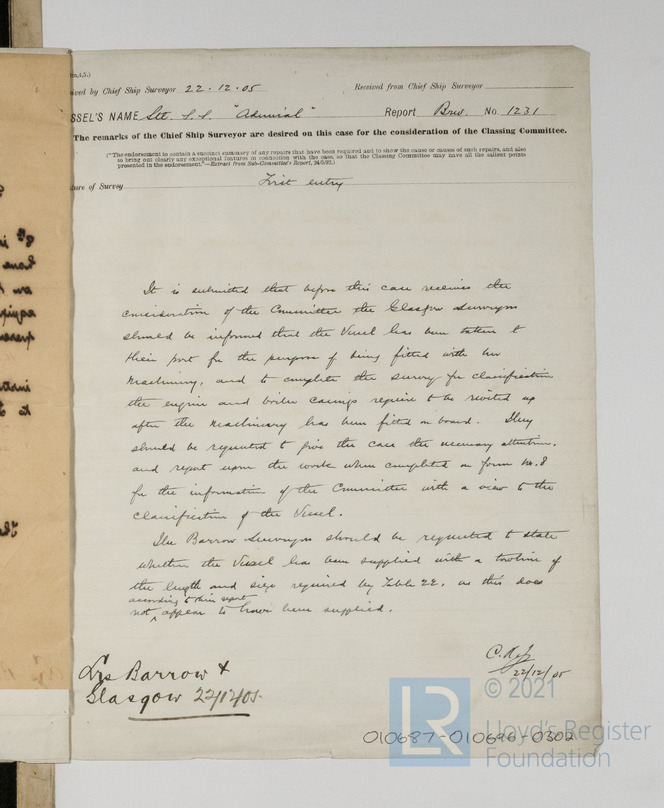 ived by Chief Ship Surveyor 22.12.05 Received from Chief Ship Surveyor
SSEL'S NAME Stl. S.S. "Admiral" Report Brw. No. 1231
The remarks of the Chief Ship Surveyor are desired on this case for the consideration of the Classing Committee.
("The endorsement to contain a succinct summary of any repairs that have been required and to show the cause or causes of such repairs, and also
to bring out clearly any exceptional features in connection with the case, so that the Classing Committee may have all the salient points
presented in the endorsement."—Extract from Sub-Committee's Report, 24/5/92.)
ture of Survey First entry
It is submitted that before this case receives the
consideration of the Committee the Glasgow Surveyors
should be informed that the Vessel has been taken to
their port for the purpose of being fitted with her
Machinery, and to complete the survey for classification
the engine and boiler casings require to be riveted up
after the Machinery has been fitted on board. They
should be requested to give the case the necessary attention,
and report upon the work when completed on form No. 8
for the information of the Committee with a view to the
classification of the Vessel.
The Barrow Surveyors should be requested to state
whether the Vessel has been supplied with a towline of
the length and size required by Table 22, as this does
according to their report
not ^ appear to have been supplied.
22/12/05
Lrs Barrow &
Glasgow 22/12/05.
© 2021
LR
Lloyd's Register
Foundation
010687-010696-0302